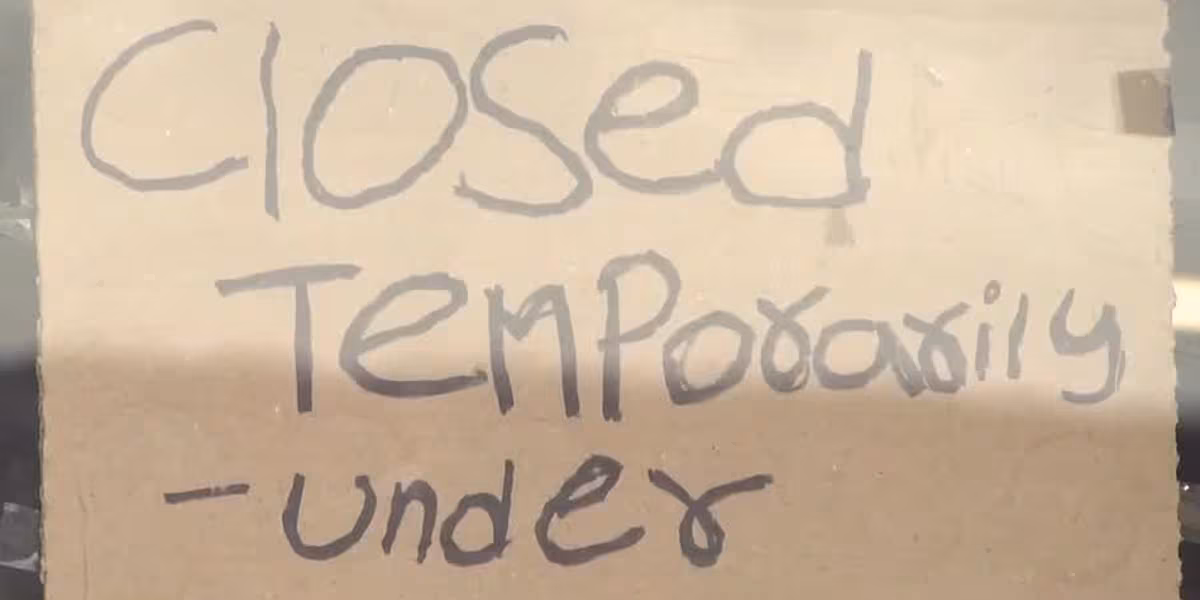 Closed
Temporarily
- under